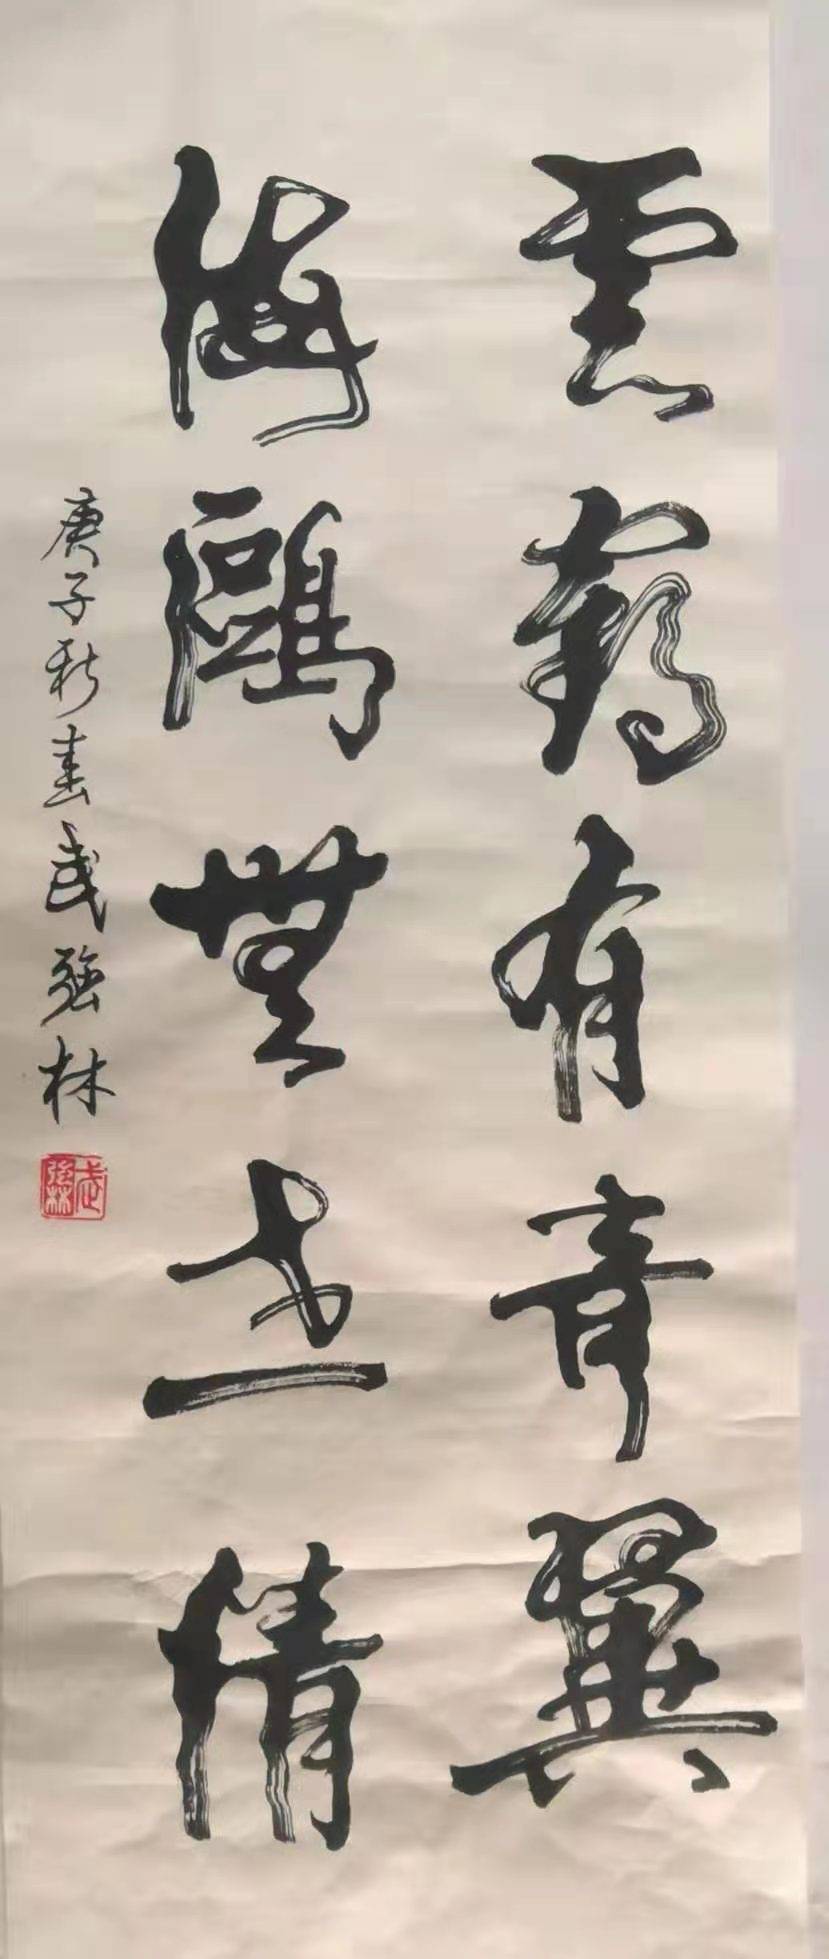 雲鶴有青翼
海鷗無世情
庚子秋書武強林
武強林